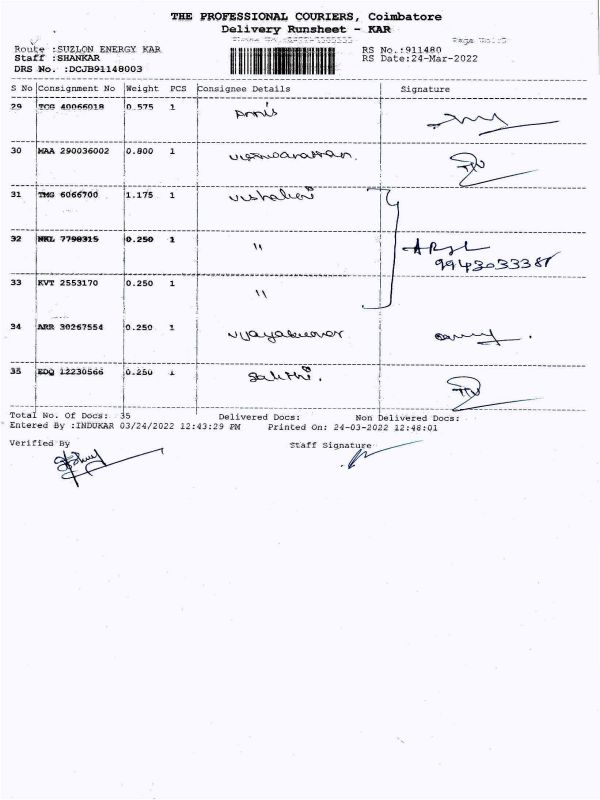 THE PROFESSIONAL COURIERS, Coimbatore
Delivery Runsheet - KAR
Route :SUZLON ENERGY KAR
RS No.:911480
Staff :SHANKAR
RS Date:24-Mar-2022
DRS No. :DCJB91148003
S No Consignment No Weight PCS Consignee Details Signature
29 TCG 40066018 0.575 1 Annis
30 MAA 290036002 0.800 1
31 TMG 6066700 1.175 1
32 NKL 7798315 0.250 1 "
9943033381
33 KVT 2553170 0.250 1 "
34 ARR 30267554 0.250 1 Vijayakumar
35 EDQ 12230566 0.250 1 Sakthi.
Total No. Of Docs: 35 Delivered Docs: Non Delivered Docs:
Entered By :INDUKAR 03/24/2022 12:43:29 PM Printed On: 24-03-2022 12:48:01
Verified By Staff Signature